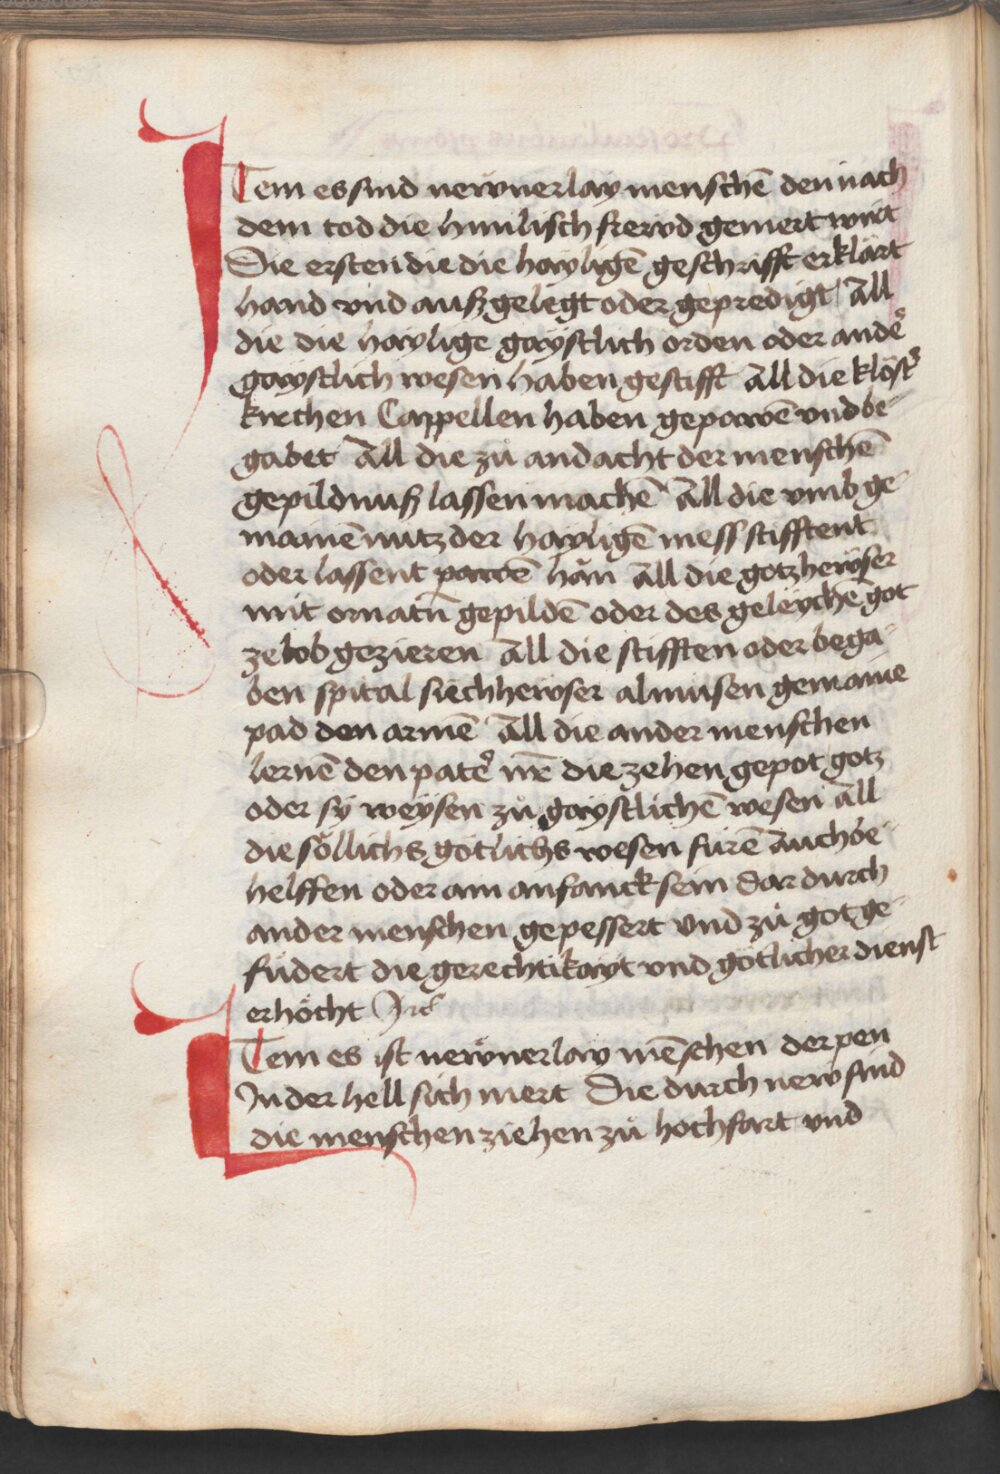 Item es sind newnerlay menschē den nach
dem tod die himlisch frewd gemert wirt
Die ersten die die hayligē geschrifft erklärt
hand vnd außgelegt oder gepredigt All
die die haylige gaystlich orden oder andeꝛ
gaystlich wesen haben gestifft All die klöst
kirchen Cappellen haben gepawē vnd be-
gabet All die zů andacht der menschē
gepildnuß lassen machē All die vmb ge-
mainē nutz der hayligē mess stifftent
oder lassent pawē hän All die gotzhewser
mit ornatn̄ gepildē oder des geleychē got
ze lob gezieren All die stifften oder bega-
ben spital siechhewser almusen gemaine
pad den armē All die ander menschen
lernē den pateꝛ nr̄ die zehen gepot gotz
oder sy weysen zů gaystlichē wesen All
die söllichs götlichs wesen fürē Auch be-
helffen oder am anfanck sein dar durch
ander menschen gepessert vnd zů got ge-
fudert die gerechtikayt vnd götlicher dienst
erhöcht
Item es ist newnerlay mēschen der pen
In der hell sich mert Die durch new sind
die menschen ziehen zů hochfart vnd